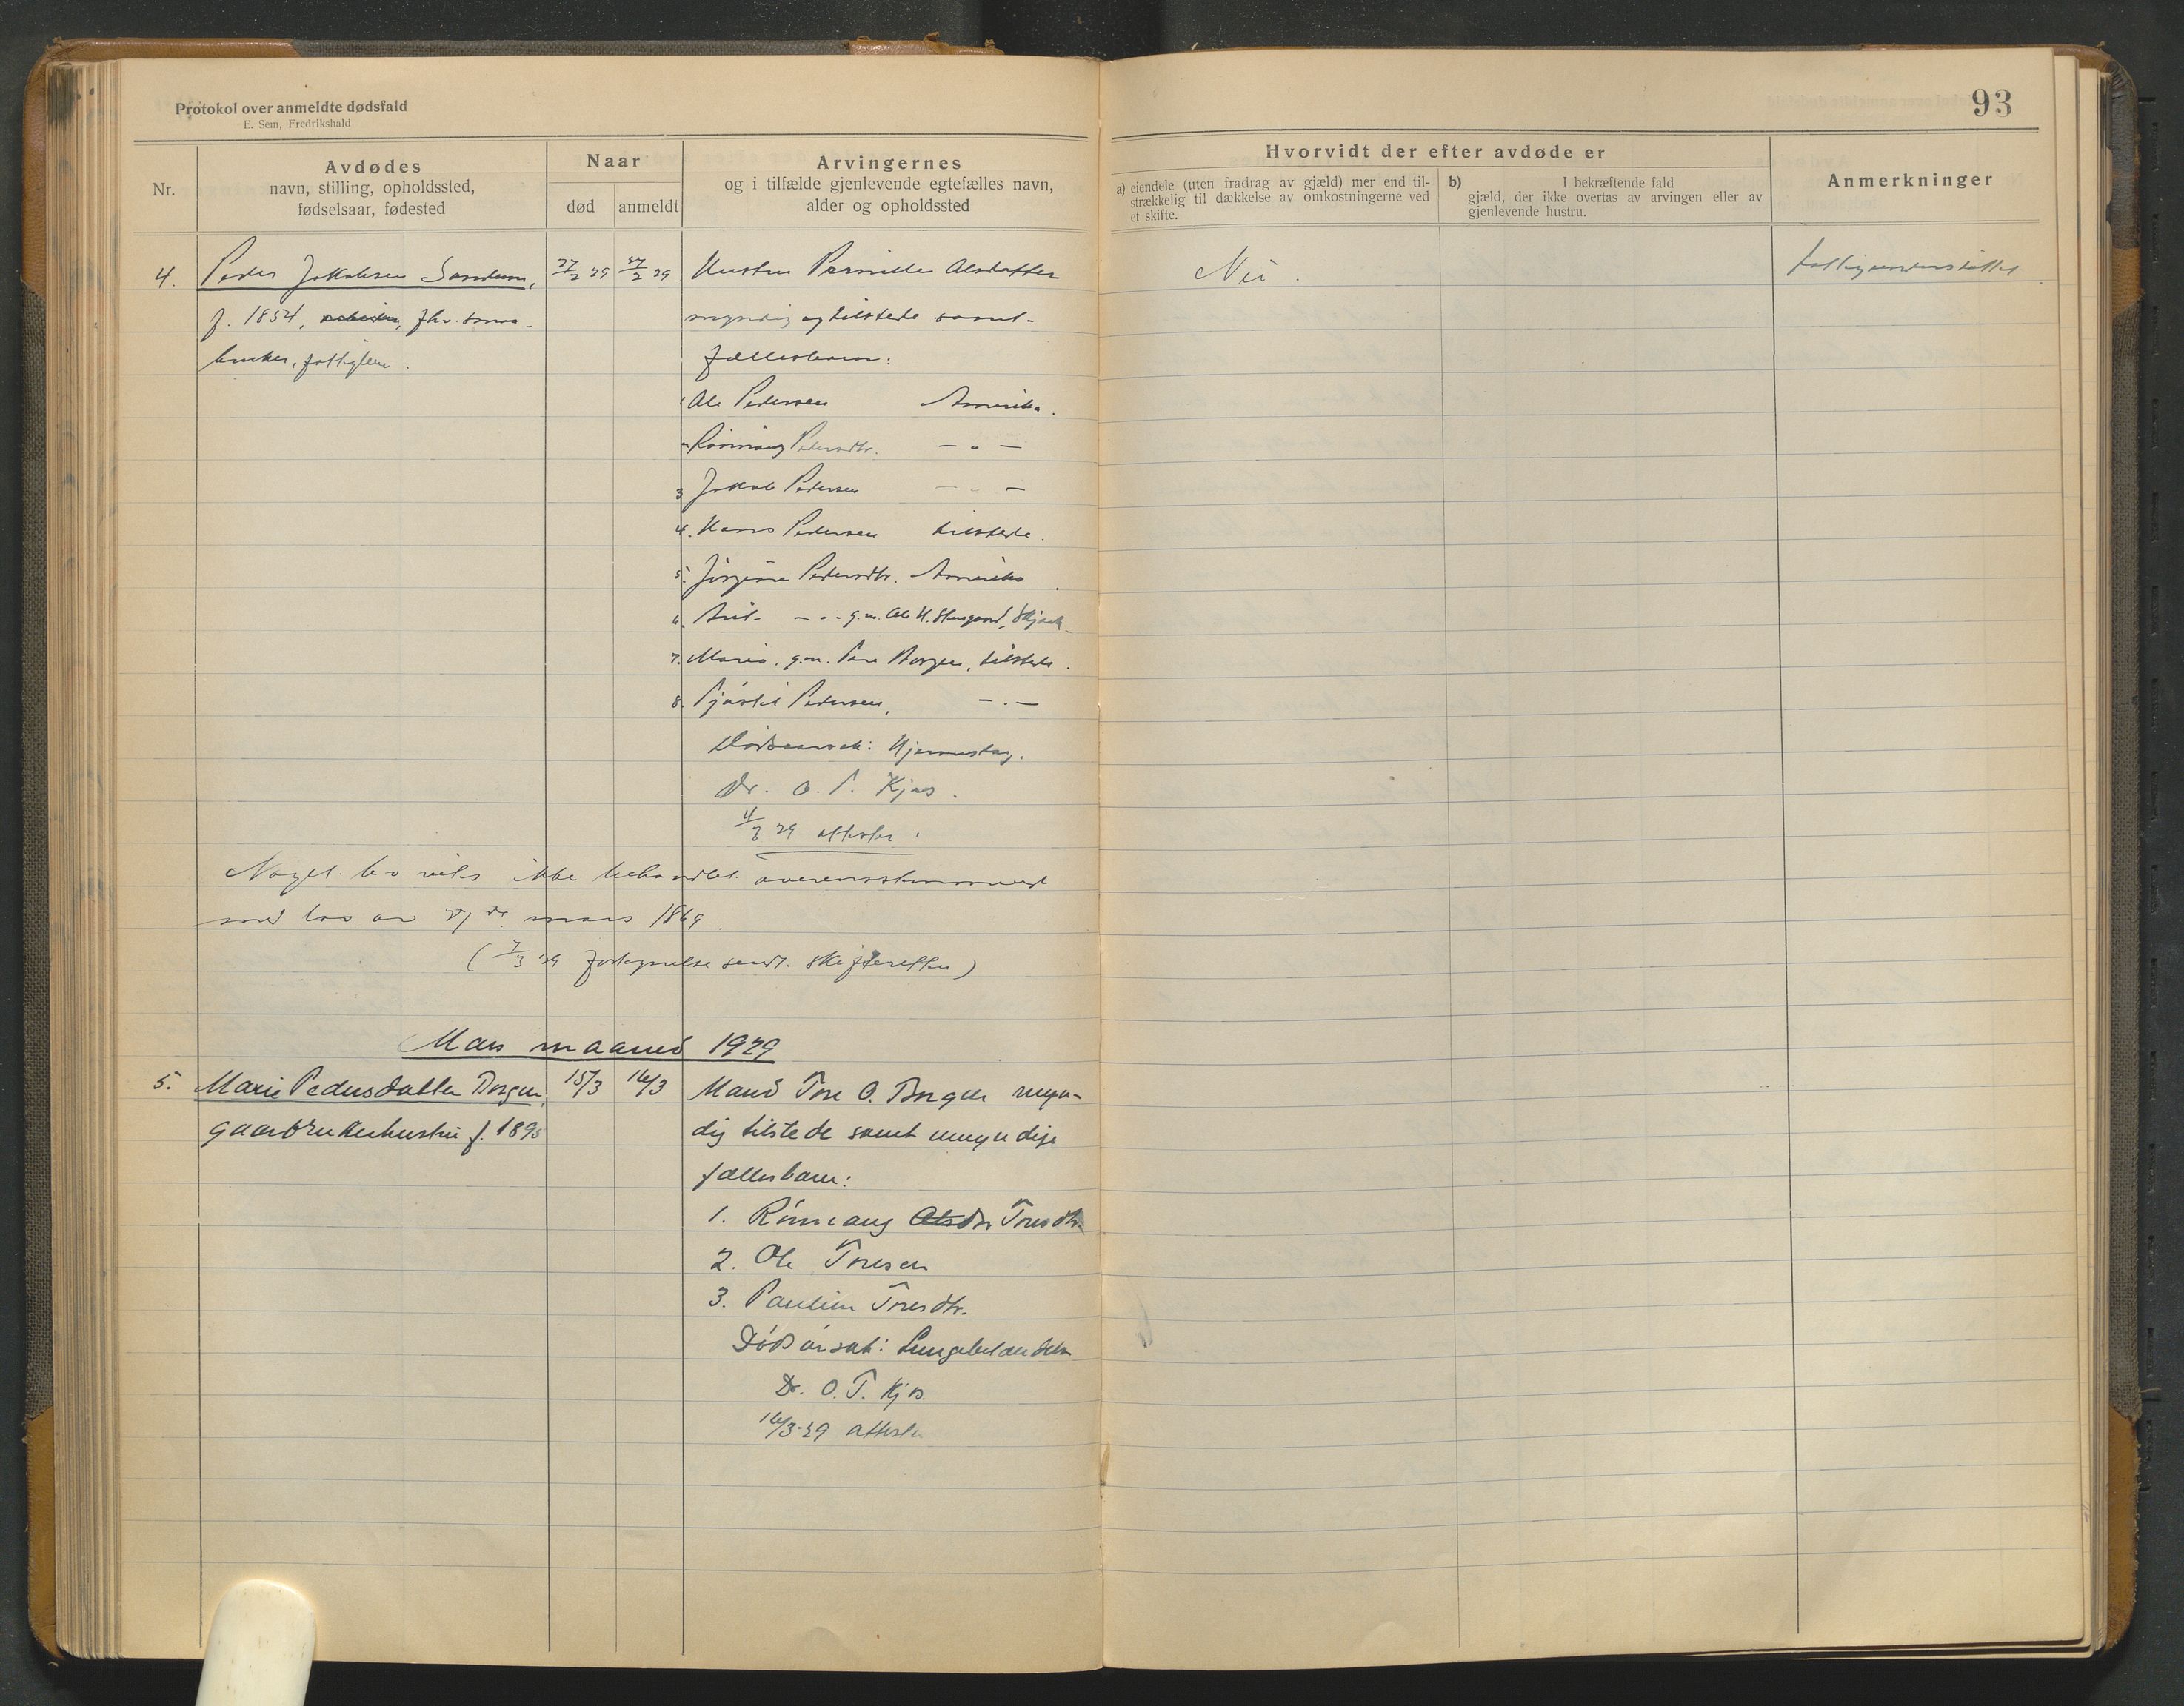 Protokol over anmeldte dødsfald
E. Sem, Fredrikshald
93
Nr.
Avdødes
navn, stilling, opholdssted,
fødselsaar, fødested
Naar
død
anmeldt
Arvingernes
og i tilfælde gjenlevende egtefælles navn,
alder og opholdssted
Hvorvidt der efter avdøde er
a) eiendele (uten fradrag av gjæld) mer end til-
strækkelig til dækkelse av omkostningerne ved
et skifte.
b) I bekræftende fald
gjæld, der ikke overtas av arvingen eller av
gjenlevende hustru.
Anmerkninger
4. Peder Jakobsen Sandum, 27/2 29 27/2 29 Hustru Pernille Olsdatter Nei. fattigunderstøttet
f. 1854, arbeider, fhv. smaa- myndig og tilstede samt
bruker, fattiglem. fællesbarn:
1 Ole Pedersen Amerika.
2 Rønnaug Pedersdtr. — " —
3 Jakob Pedersen — " —
4. Hans Pedersen tilstede.
5. Jørgine Pedersdtr. Amerika
6. Anit — " - g.m. Ole H. Skjaak.
7. Maria, g.m. Tore Borgen, tilstede.
8. Kjøstil Pedersen, — " —
Dødsaarsak: Hjerneslag.
Dr. O. T. Kjos.
4/3 29 attester.
Noget bo vites ikke behandlet overensstemmende
med lov av 27de mars 1869.
(7/3 29 fortegnelse sendt skifteretten)
Mars maaned 1929
5. Marie Pedersdatter Borgen, 15/3 16/3 Mand Tore O. Borgen myn-
gaardbrukerhustru f. 1895 dig tilstede samt umyndige
fællesbarn:
1. Rønnaug Olsdtr Toresdtr.
2. Ole Toresen
3. Pauline Toresdtr.
Dødsårsak: Lungebetændelse
Dr. O. T. Kjos.
16/3-29 attester